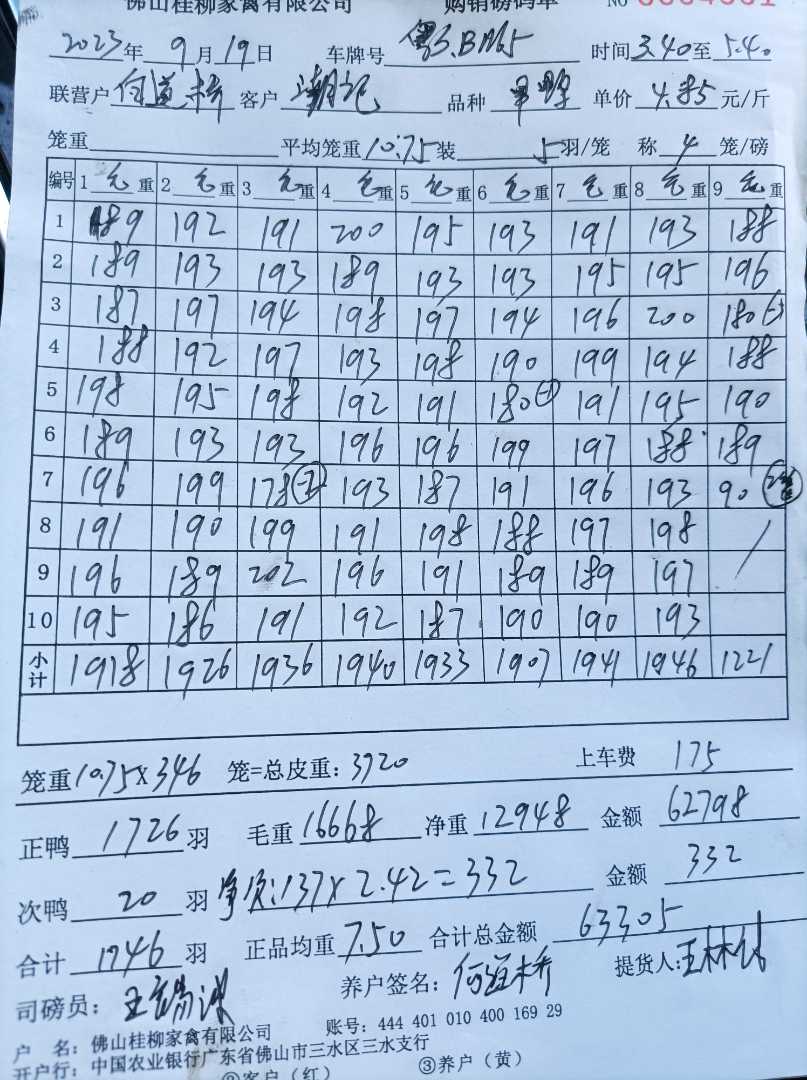 佛山桂柳家禽有限公司 购销磅码单 NO
2023年9月19日 车牌号 时间3.40至5.40
联营户何道桥 客户潮记 品种 单价4.85元/斤
笼重 平均笼重10.75装5羽/笼 称4笼/磅
编号 1毛重 2毛重 3毛重 4毛重 5毛重 6毛重 7毛重 8毛重 9毛重
1 189 192 191 200 195 193 191 193 188
2 189 193 193 189 193 193 195 195 196
3 187 197 194 198 197 194 196 200 180
4 188 192 197 193 198 190 199 194 188
5 198 195 198 192 191 180 191 195 190
6 189 193 193 196 196 199 197 188 189
7 196 199 178 193 187 191 196 193 90
8 191 190 199 191 198 188 197 198 /
9 196 189 202 196 191 189 189 197
10 195 186 191 192 187 190 190 193
小计 1918 1926 1936 1940 1933 1907 1941 1946 1221
笼重10.75X346 笼=总皮重:3720 上车费 175
正鸭1726羽 毛重16668 净重12948 金额62798
次鸭20羽 净次:137X2.42=332 金额332
合计1746羽 正品均重7.50 合计总金额63305
司磅员: 养户签名:何道桥 提货人:王林
户 名: 佛山桂柳家禽有限公司 账号: 444 401 010 400 169 29
开户行: 中国农业银行广东省佛山市三水区三水支行
②客户（红） ③养户（黄）